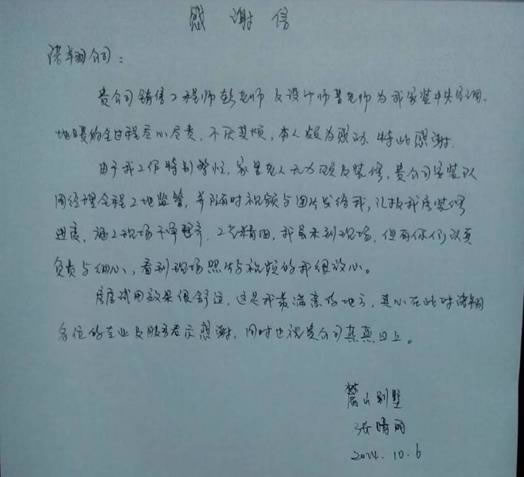 感谢信
诸翔公司：
贵公司销售工程师彭老师及设计师曾老师为我家装中央空调、
地暖的全过程尽心尽责，不厌其烦，本人颇为感动，特此感谢。
由于我工作特别繁忙，家里老人无力顾及装修，贵公司安装队
周经理全程工地监督，并随时视频与图片发给我，汇报我房装修
进度，施工现场干净整齐，工艺精细，我虽未到现场，但有你们认真
负责与细心，看到现场照片与视频的我很放心。
房屋试用效果很舒适，这是我最满意的地方，真心在此对诸翔
各位的专业及服务表示感谢，同时也祝贵公司蒸蒸日上。
麓山别墅
张晴雨
2014.10.6